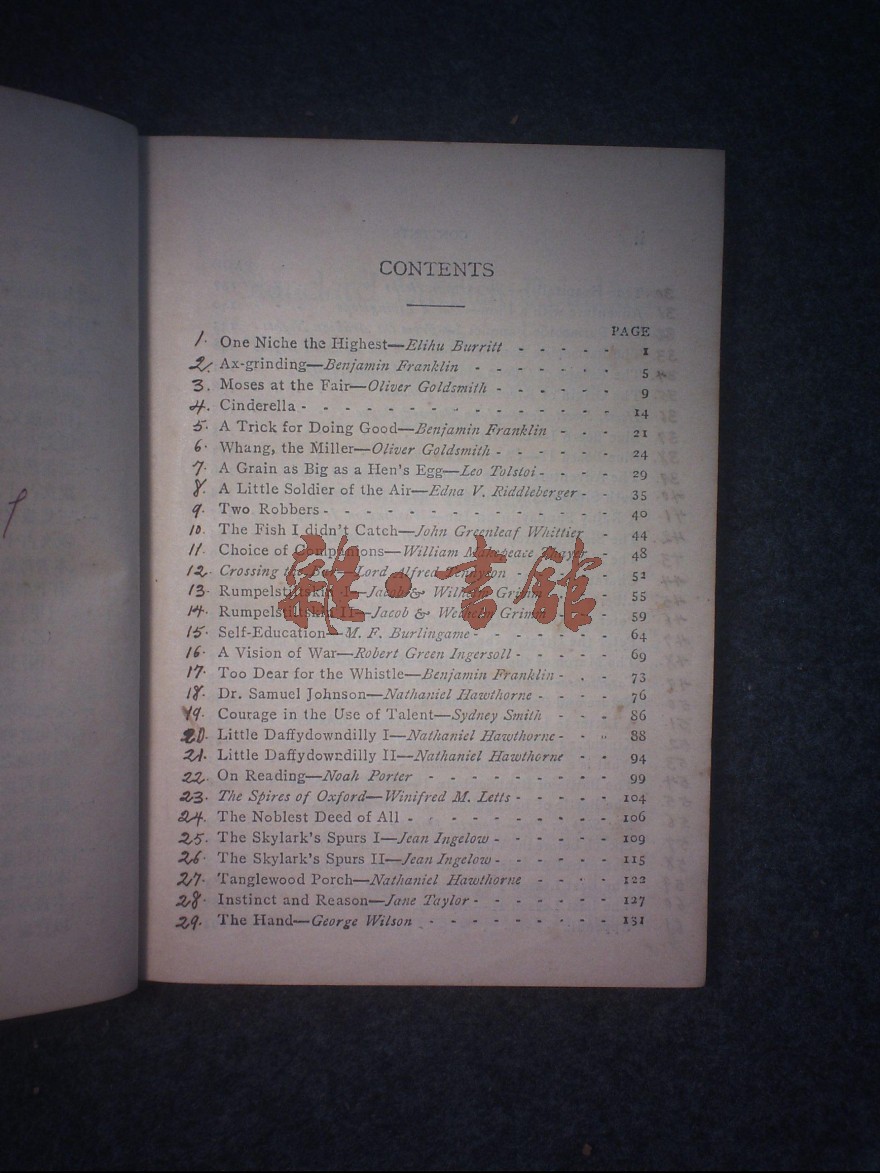 CONTENTS
PAGE
1. One Niche the Highest—Elihu Burritt - - - - - 1
2. Ax-grinding—Benjamin Franklin - - - - - - - 5
3. Moses at the Fair—Oliver Goldsmith - - - - - - 9
4. Cinderella - - - - - - - - - - - - - 14
5. A Trick for Doing Good—Benjamin Franklin - - - 21
6. Whang, the Miller—Oliver Goldsmith - - - - - - 24
7. A Grain as Big as a Hen's Egg—Leo Tolstoi - - - - 29
8. A Little Soldier of the Air—Edna V. Riddleberger - - 35
9. Two Robbers - - - - - - - - - - - - 40
10. The Fish I didn't Catch—John Greenleaf Whittier - 44
11. Choice of Companions—William Makepeace Thayer - 48
12. Crossing the Bar—Lord Alfred Tennyson - - - - 52
13. Rumpelstiltskin I—Jacob & Wilhelm Grimm - - - 55
14. Rumpelstiltskin II—Jacob & Welhelm Grimm - - - 59
15. Self-Education—M. F. Burlingame - - - - - - - 64
16. A Vision of War—Robert Green Ingersoll - - - - - 69
17. Too Dear for the Whistle—Benjamin Franklin - - - 73
18. Dr. Samuel Johnson—Nathaniel Hawthorne - - - - 76
19. Courage in the Use of Talent—Sydney Smith - - - 86
20. Little Daffydowndilly I—Nathaniel Hawthorne - - - 88
21. Little Daffydowndilly II—Nathaniel Hawthorne - - 94
22. On Reading—Noah Porter - - - - - - - - - 99
23. The Spires of Oxford—Winifred M. Letts - - - - - 104
24. The Noblest Deed of All - - - - - - - - - - 106
25. The Skylark's Spurs I—Jean Ingelow - - - - - - 109
26. The Skylark's Spurs II—Jean Ingelow - - - - - - 115
27. Tanglewood Porch—Nathaniel Hawthorne - - - - 122
28. Instinct and Reason—Jane Taylor - - - - - - - 127
29. The Hand—George Wilson - - - - - - - - - 131
雜·書館